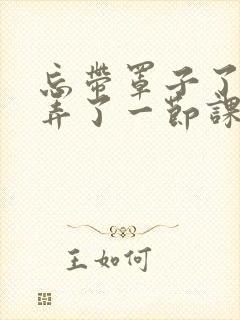 忘带罩子了
弄了一节課
王如何